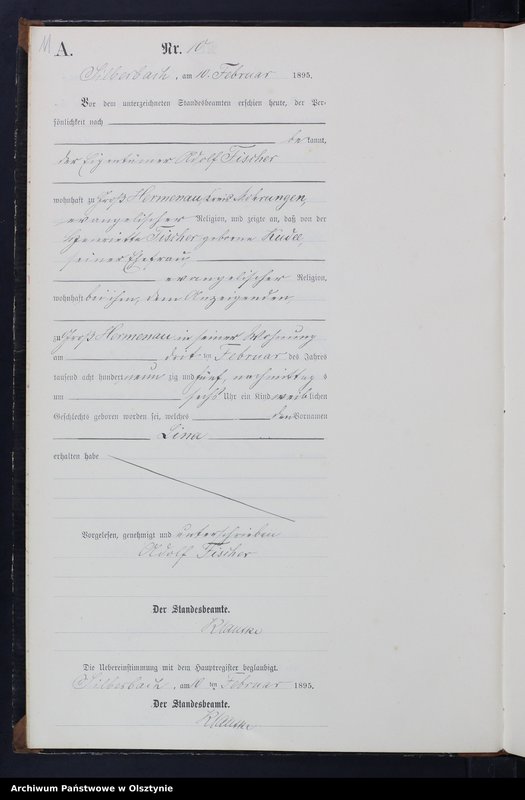 11
A.
Nr. 10
Silberbach, am 10. Februar 1895.
Vor dem unterzeichneten Standesbeamten erschien heute, der Per-
sönlichkeit nach
be kannt,
der Eigentümer Adolf Fischer
wohnhaft zu Groß Hermenau Kreis Mohrungen,
evangelischer Religion, und zeigte an, daß von der
Henriette Fischer geborne
seiner Ehefrau
evangelischer Religion,
wohnhaft bei ihm, dem Anzeigenden
zu Groß Hermenau in seiner Wohnung
am dritten Februar des Jahres
tausend acht hundert neun zig und fünf, nachmittag s
um sechs Uhr ein Kind weiblichen
Geschlechts geboren worden sei, welches den Vornamen
Lina
erhalten habe
Vorgelesen, genehmigt und unterschrieben
Adolf Fischer
Der Standesbeamte.
Die Uebereinstimmung mit dem Hauptregister beglaubigt.
Silberbach, am 10 ten Februar 1895.
Der Standesbeamte.
Archiwum Państwowe w Olsztynie